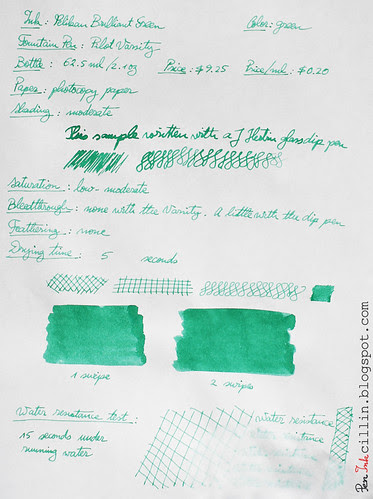 Ink: Pelikan Brilliant Green Color: green
Fountain Pen: Pilot Varsity
Bottle: 62.5 ml/2.1oz Price: $9.25 Price/ml: $0.20
Paper: photocopy paper
Shading: moderate
This sample written with a J Herbin glass dip pen
Saturation: low-moderate
Bleedthrough: none with the Varsity. A little with the dip pen
Feathering: none
Drying time: 5 seconds
1 swipe
2 swipes
Water resistance test:
15 seconds under
running water
water resistance
water resistance
Pen Ink cillin.blogspot.com